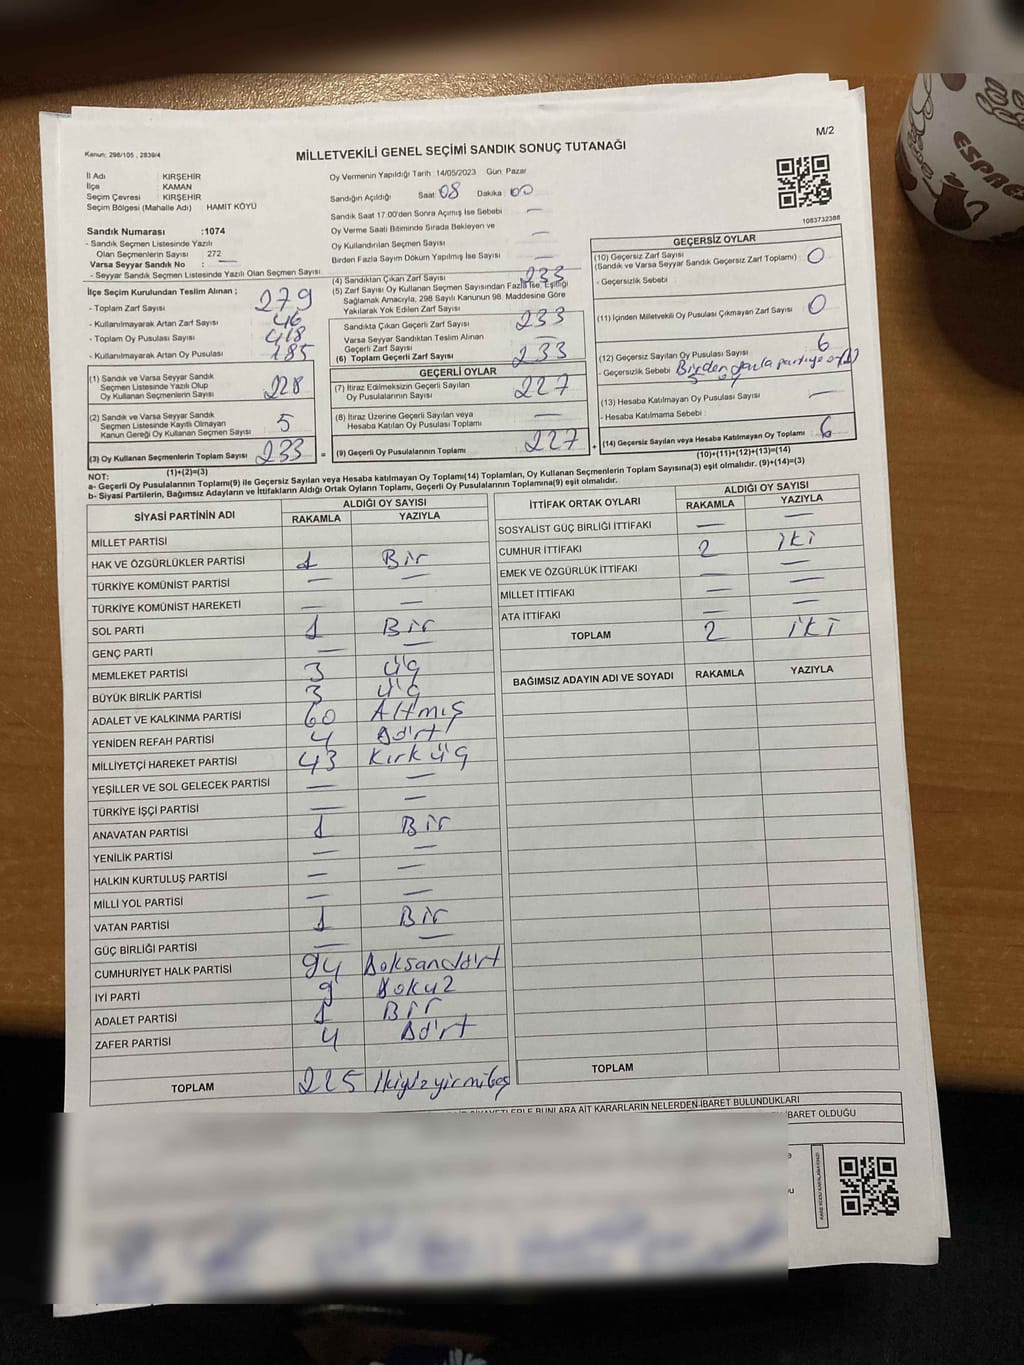 M/2
Kanun: 298/105 , 2839/4
MİLLETVEKİLİ GENEL SEÇİMİ SANDIK SONUÇ TUTANAĞI
İl Adı : KIRŞEHİR
İlçe : KAMAN
Seçim Çevresi : KIRŞEHİR
Seçim Bölgesi (Mahalle Adı) : HAMİT KÖYÜ
Sandık Numarası :1074
- Sandık Seçmen Listesinde Yazılı
Olan Seçmenlerin Sayısı : 272
Varsa Seyyar Sandık No : —
- Seyyar Sandık Seçmen Listesinde Yazılı Olan Seçmen Sayısı
İlçe Seçim Kurulundan Teslim Alınan ;
- Toplam Zarf Sayısı : 279
- Kullanılmayarak Artan Zarf Sayısı : 46
- Toplam Oy Pusulası Sayısı : 418
- Kullanılmayarak Artan Oy Pusulası : 185
(1) Sandık ve Varsa Seyyar Sandık
Seçmen Listesinde Yazılı Olup
Oy Kullanan Seçmenlerin Sayısı 228
(2) Sandık ve Varsa Seyyar Sandık
Seçmen Listesinde Kayıtlı Olmayan
Kanun Gereği Oy Kullanan Seçmen Sayısı 5
(3) Oy Kullanan Seçmenlerin Toplam Sayısı 233
(1)+(2)=(3)
Oy Vermenin Yapıldığı Tarih : 14/05/2023 Gün : Pazar
Sandığın Açıldığı Saat : 08 Dakika : 00
Sandık Saat 17:00'den Sonra Açmış İse Sebebi —
Oy Verme Saati Bitiminde Sırada Bekleyen ve
Oy Kullandırılan Seçmen Sayısı —
Birden Fazla Sayım Döküm Yapılmış İse Sayısı —
(4) Sandıktan Çıkan Zarf Sayısı 233
(5) Zarf Sayısı Oy Kullanan Seçmen Sayısından Fazla İse, Eşitliği
Sağlamak Amacıyla, 298 Sayılı Kanunun 98. Maddesine Göre
Yakılarak Yok Edilen Zarf Sayısı
Sandıkta Çıkan Geçerli Zarf Sayısı 233
Varsa Seyyar Sandıktan Teslim Alınan
Geçerli Zarf Sayısı —
(6) Toplam Geçerli Zarf Sayısı 233
GEÇERLİ OYLAR
(7) İtiraz Edilmeksizin Geçerli Sayılan
Oy Pusulalarının Sayısı 227
(8) İtiraz Üzerine Geçerli Sayılan veya
Hesaba Katılan Oy Pusulası Toplamı —
= (9) Geçerli Oy Pusulalarının Toplamı 227 +
1083732388
GEÇERSİZ OYLAR
(10) Geçersiz Zarf Sayısı
(Sandık ve Varsa Seyyar Sandık Geçersiz Zarf Toplamı) : 0
- Geçersizlik Sebebi :
(11) İçinden Milletvekili Oy Pusulası Çıkmayan Zarf Sayısı 0
(12) Geçersiz Sayılan Oy Pusulası Sayısı 6
- Geçersizlik Sebebi : Birden fazla partiye oy
(13) Hesaba Katılmayan Oy Pusulası Sayısı —
- Hesaba Katılmama Sebebi :
(14) Geçersiz Sayılan veya Hesaba Katılmayan Oy Toplamı 6
(10)+(11)+(12)+(13)=(14)
NOT:
a- Geçerli Oy Pusulalarının Toplamı(9) ile Geçersiz Sayılan veya Hesaba Katılmayan Oy Toplamı(14) Toplamları, Oy Kullanan Seçmenlerin Toplam Sayısına(3) eşit olmalıdır. (9)+(14)=(3)
b- Siyasi Partilerin, Bağımsız Adayların ve İttifakların Aldığı Ortak Oyların Toplamı, Geçerli Oy Pusulalarının Toplamına(9) eşit olmalıdır.
SİYASİ PARTİNİN ADI ALDIĞI OY SAYISI
RAKAMLA YAZIYLA
MİLLET PARTİSİ
HAK VE ÖZGÜRLÜKLER PARTİSİ 1 Bir
TÜRKİYE KOMÜNİST PARTİSİ — —
TÜRKİYE KOMÜNİST HAREKETİ — —
SOL PARTİ 1 Bir
GENÇ PARTİ — —
MEMLEKET PARTİSİ 3 üç
BÜYÜK BİRLİK PARTİSİ 3 üç
ADALET VE KALKINMA PARTİSİ 60 Altmış
YENİDEN REFAH PARTİSİ 4 Dört
MİLLİYETÇİ HAREKET PARTİSİ 43 Kırk üç
YEŞİLLER VE SOL GELECEK PARTİSİ — —
TÜRKİYE İŞÇİ PARTİSİ — —
ANAVATAN PARTİSİ 1 Bir
YENİLİK PARTİSİ — —
HALKIN KURTULUŞ PARTİSİ — —
MİLLİ YOL PARTİSİ — —
VATAN PARTİSİ 1 Bir
GÜÇ BİRLİĞİ PARTİSİ — —
CUMHURİYET HALK PARTİSİ 94 Doksandört
İYİ PARTİ 9 Dokuz
ADALET PARTİSİ 1 Bir
ZAFER PARTİSİ 4 Dört
TOPLAM 225 İkiyüzyirmibeş
İTTİFAK ORTAK OYLARI ALDIĞI OY SAYISI
RAKAMLA YAZIYLA
SOSYALİST GÜÇ BİRLİĞİ İTTİFAKI — —
CUMHUR İTTİFAKI 2 iki
EMEK VE ÖZGÜRLÜK İTTİFAKI — —
MİLLET İTTİFAKI — —
ATA İTTİFAKI — —
TOPLAM 2 iki
BAĞIMSIZ ADAYIN ADI VE SOYADI RAKAMLA YAZIYLA
TOPLAM
BUNLARA AİT KARARLARIN NELERDEN İBARET BULUNDUKLARI
İBARET OLDUĞU
ESPRE